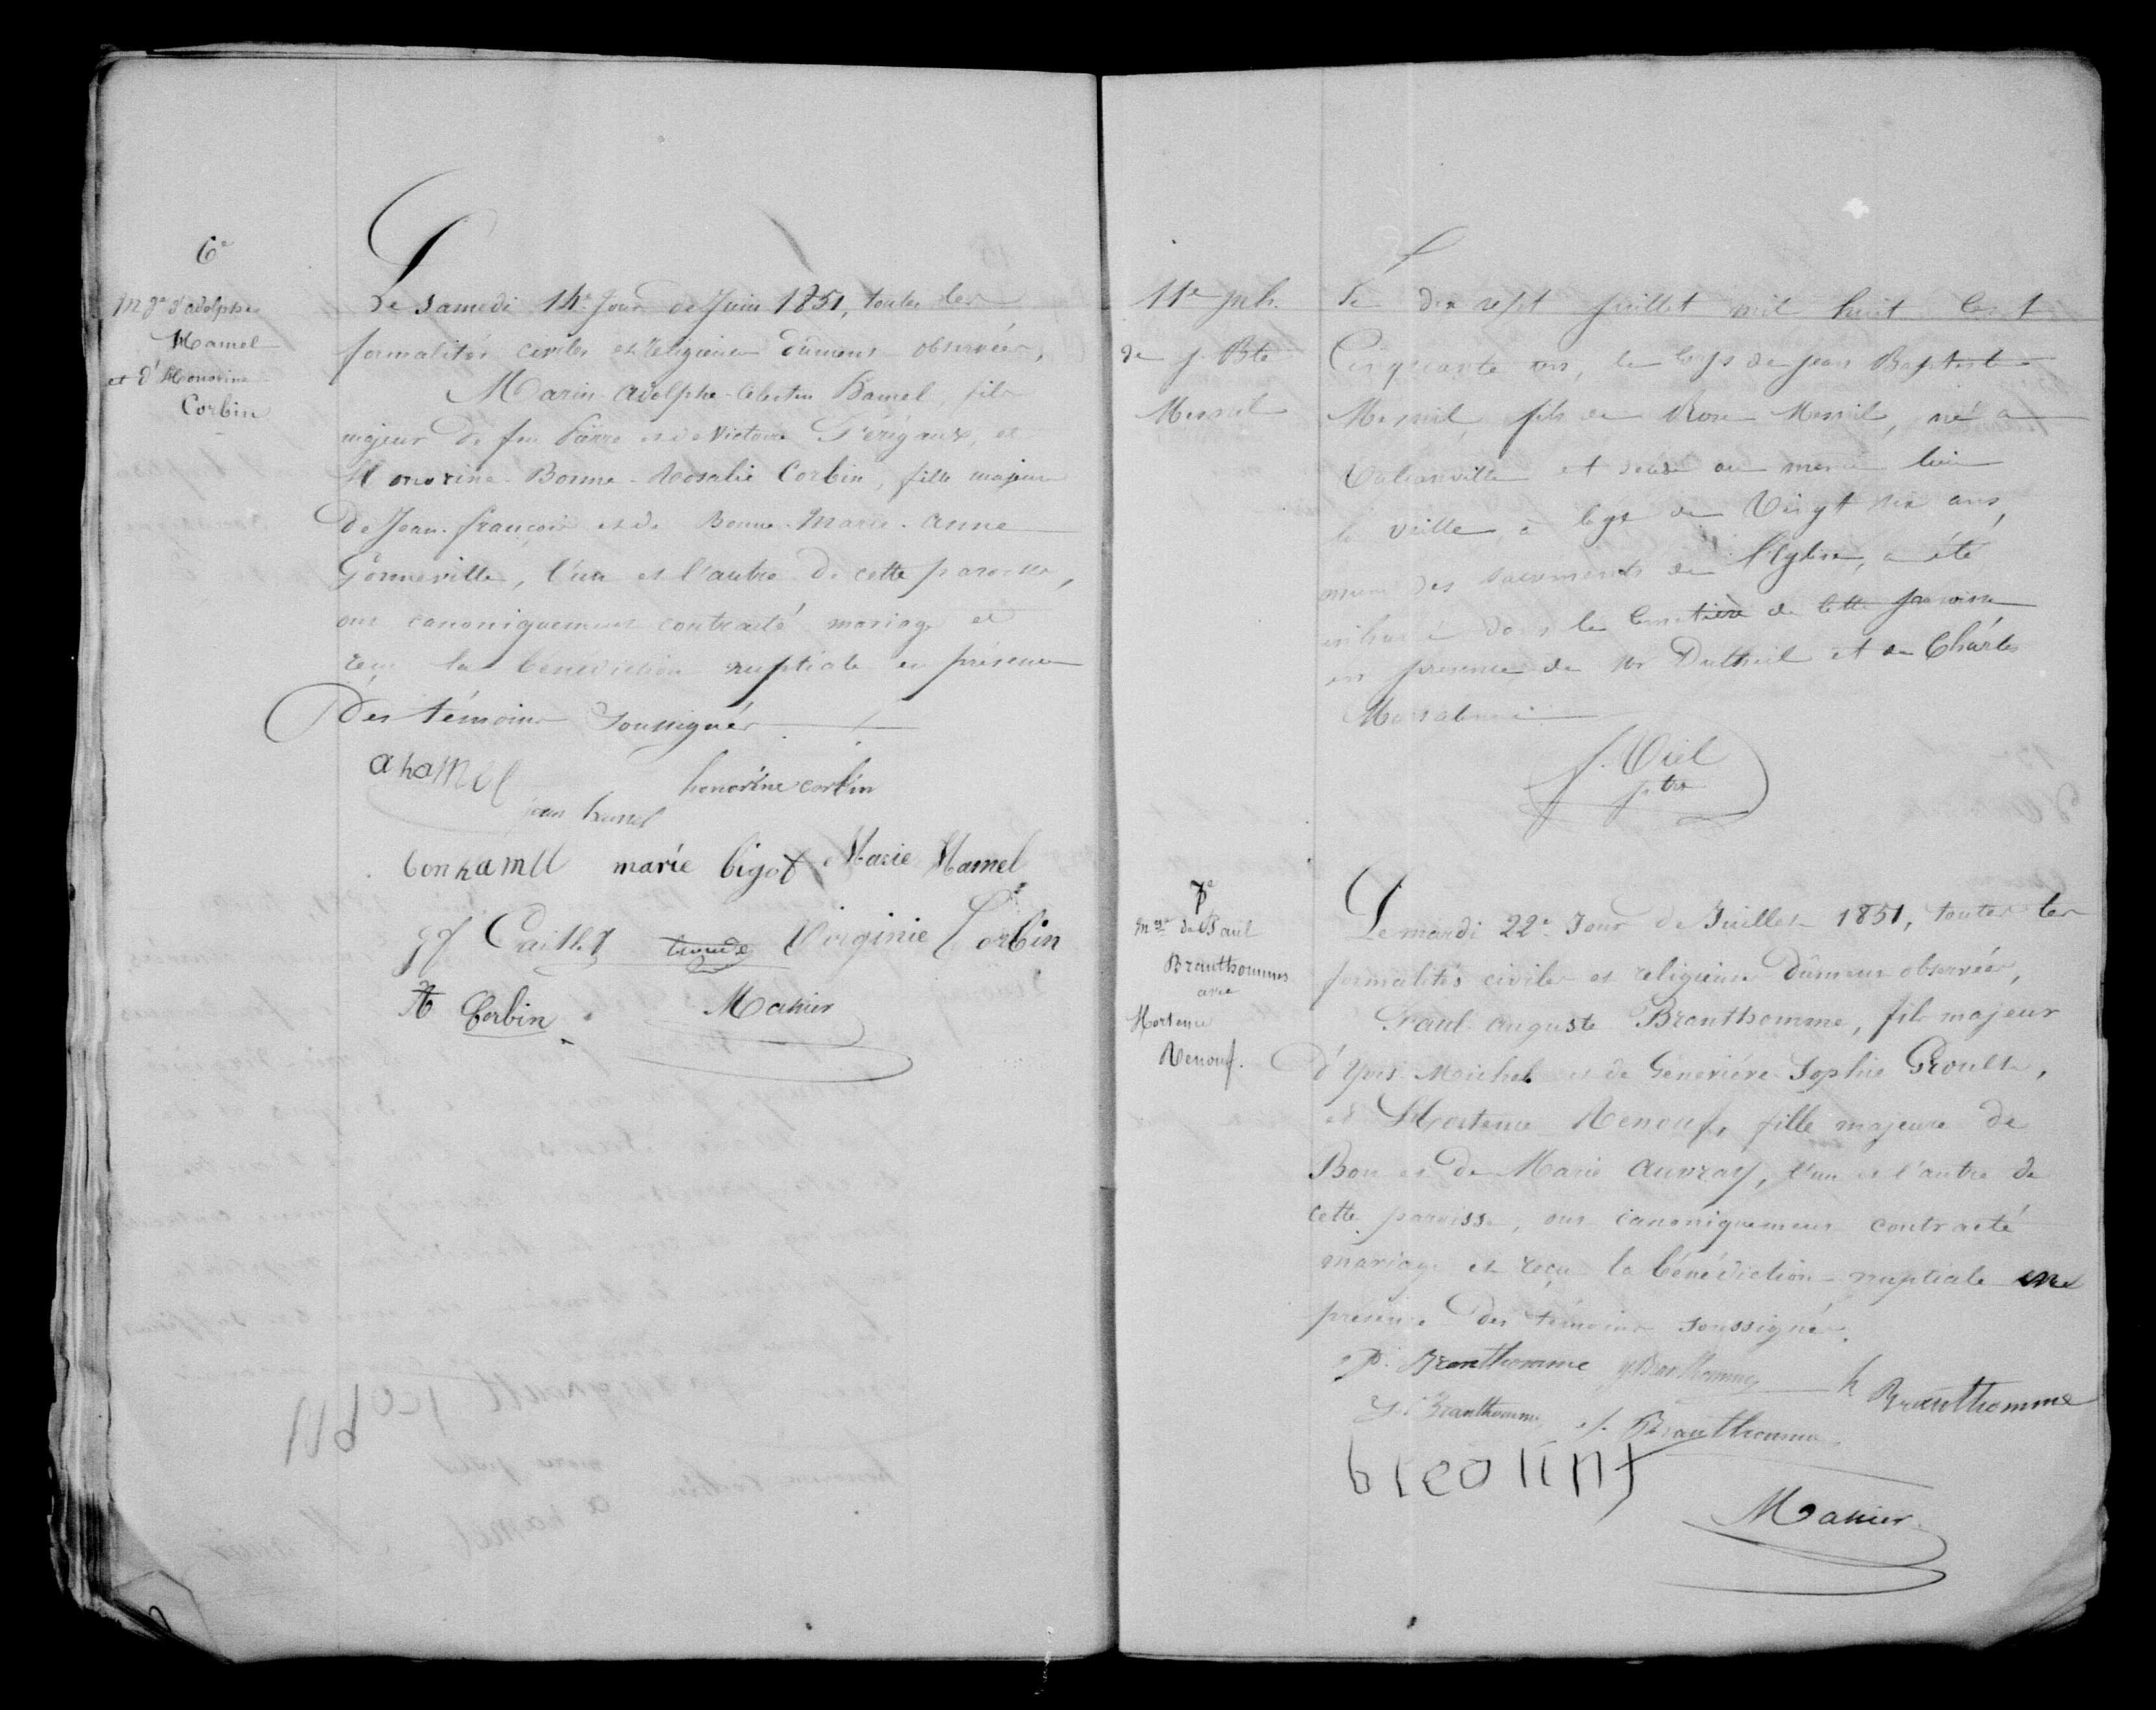 6e
Mge d'adolphe
Hamel
et d'Honorine
Corbin
Le samedi 14e Jour de Juin 1851, toutes les
formalités civiles et religieuses dûment observées,
Marin-Adolphe-Célestin Hamel, fils
majeur de feu Pierre et de Victoire et
Honorine-Bonne-Rosalie Corbin, fille majeure
de Jean-françois et de Bonne-Marie-Anne
Gonneville, l'un et l'autre de cette paroisse,
ont canoniquement contracté mariage et
reçu la bénédiction nuptiale en présence
Des témoins Soussignés
a hamel
honorine corbin
jean hamel
bon hamel marie bigot Marie Hamel
Virginie Corbin
A Corbin
Manier
11e inh.
de j. Bte
Mesnil
Le dix sept juillet mil huit Cent
Cinquante un, le corps de jean Baptiste
Mesnil, fils de Rose Mesnil, né a
et décédé au même lieu
la veille, a l'âge de Vingt six ans,
muni des sacrements de l'Eglise, a été
inhumé dans le Cimetière de Cette paroisse
en presence de Mr Dutheil et de Charles
f. Viel
ptre
7e
Mge de Paul
Branthomme
avec
Hortence
Renouf.
Le mardi 22e Jour de Juillet 1851, toutes les
formalités civiles et religieuses dûment observées,
Paul-auguste Branthomme, fils majeur
d'Yves-Michel et de Geneviéve-Sophie Groult,
et Hortence Renouf, fille majeure de
Bon et de Marie Auvray, l'un et l'autre de
cette paroisse, ont canoniquement contracté
mariage et reçu la bénédiction nuptiale en
présence Des témoins soussignés.
p. Branthomme y Branthomme h Branthomme
Branthomme f. Branthomme
Manier